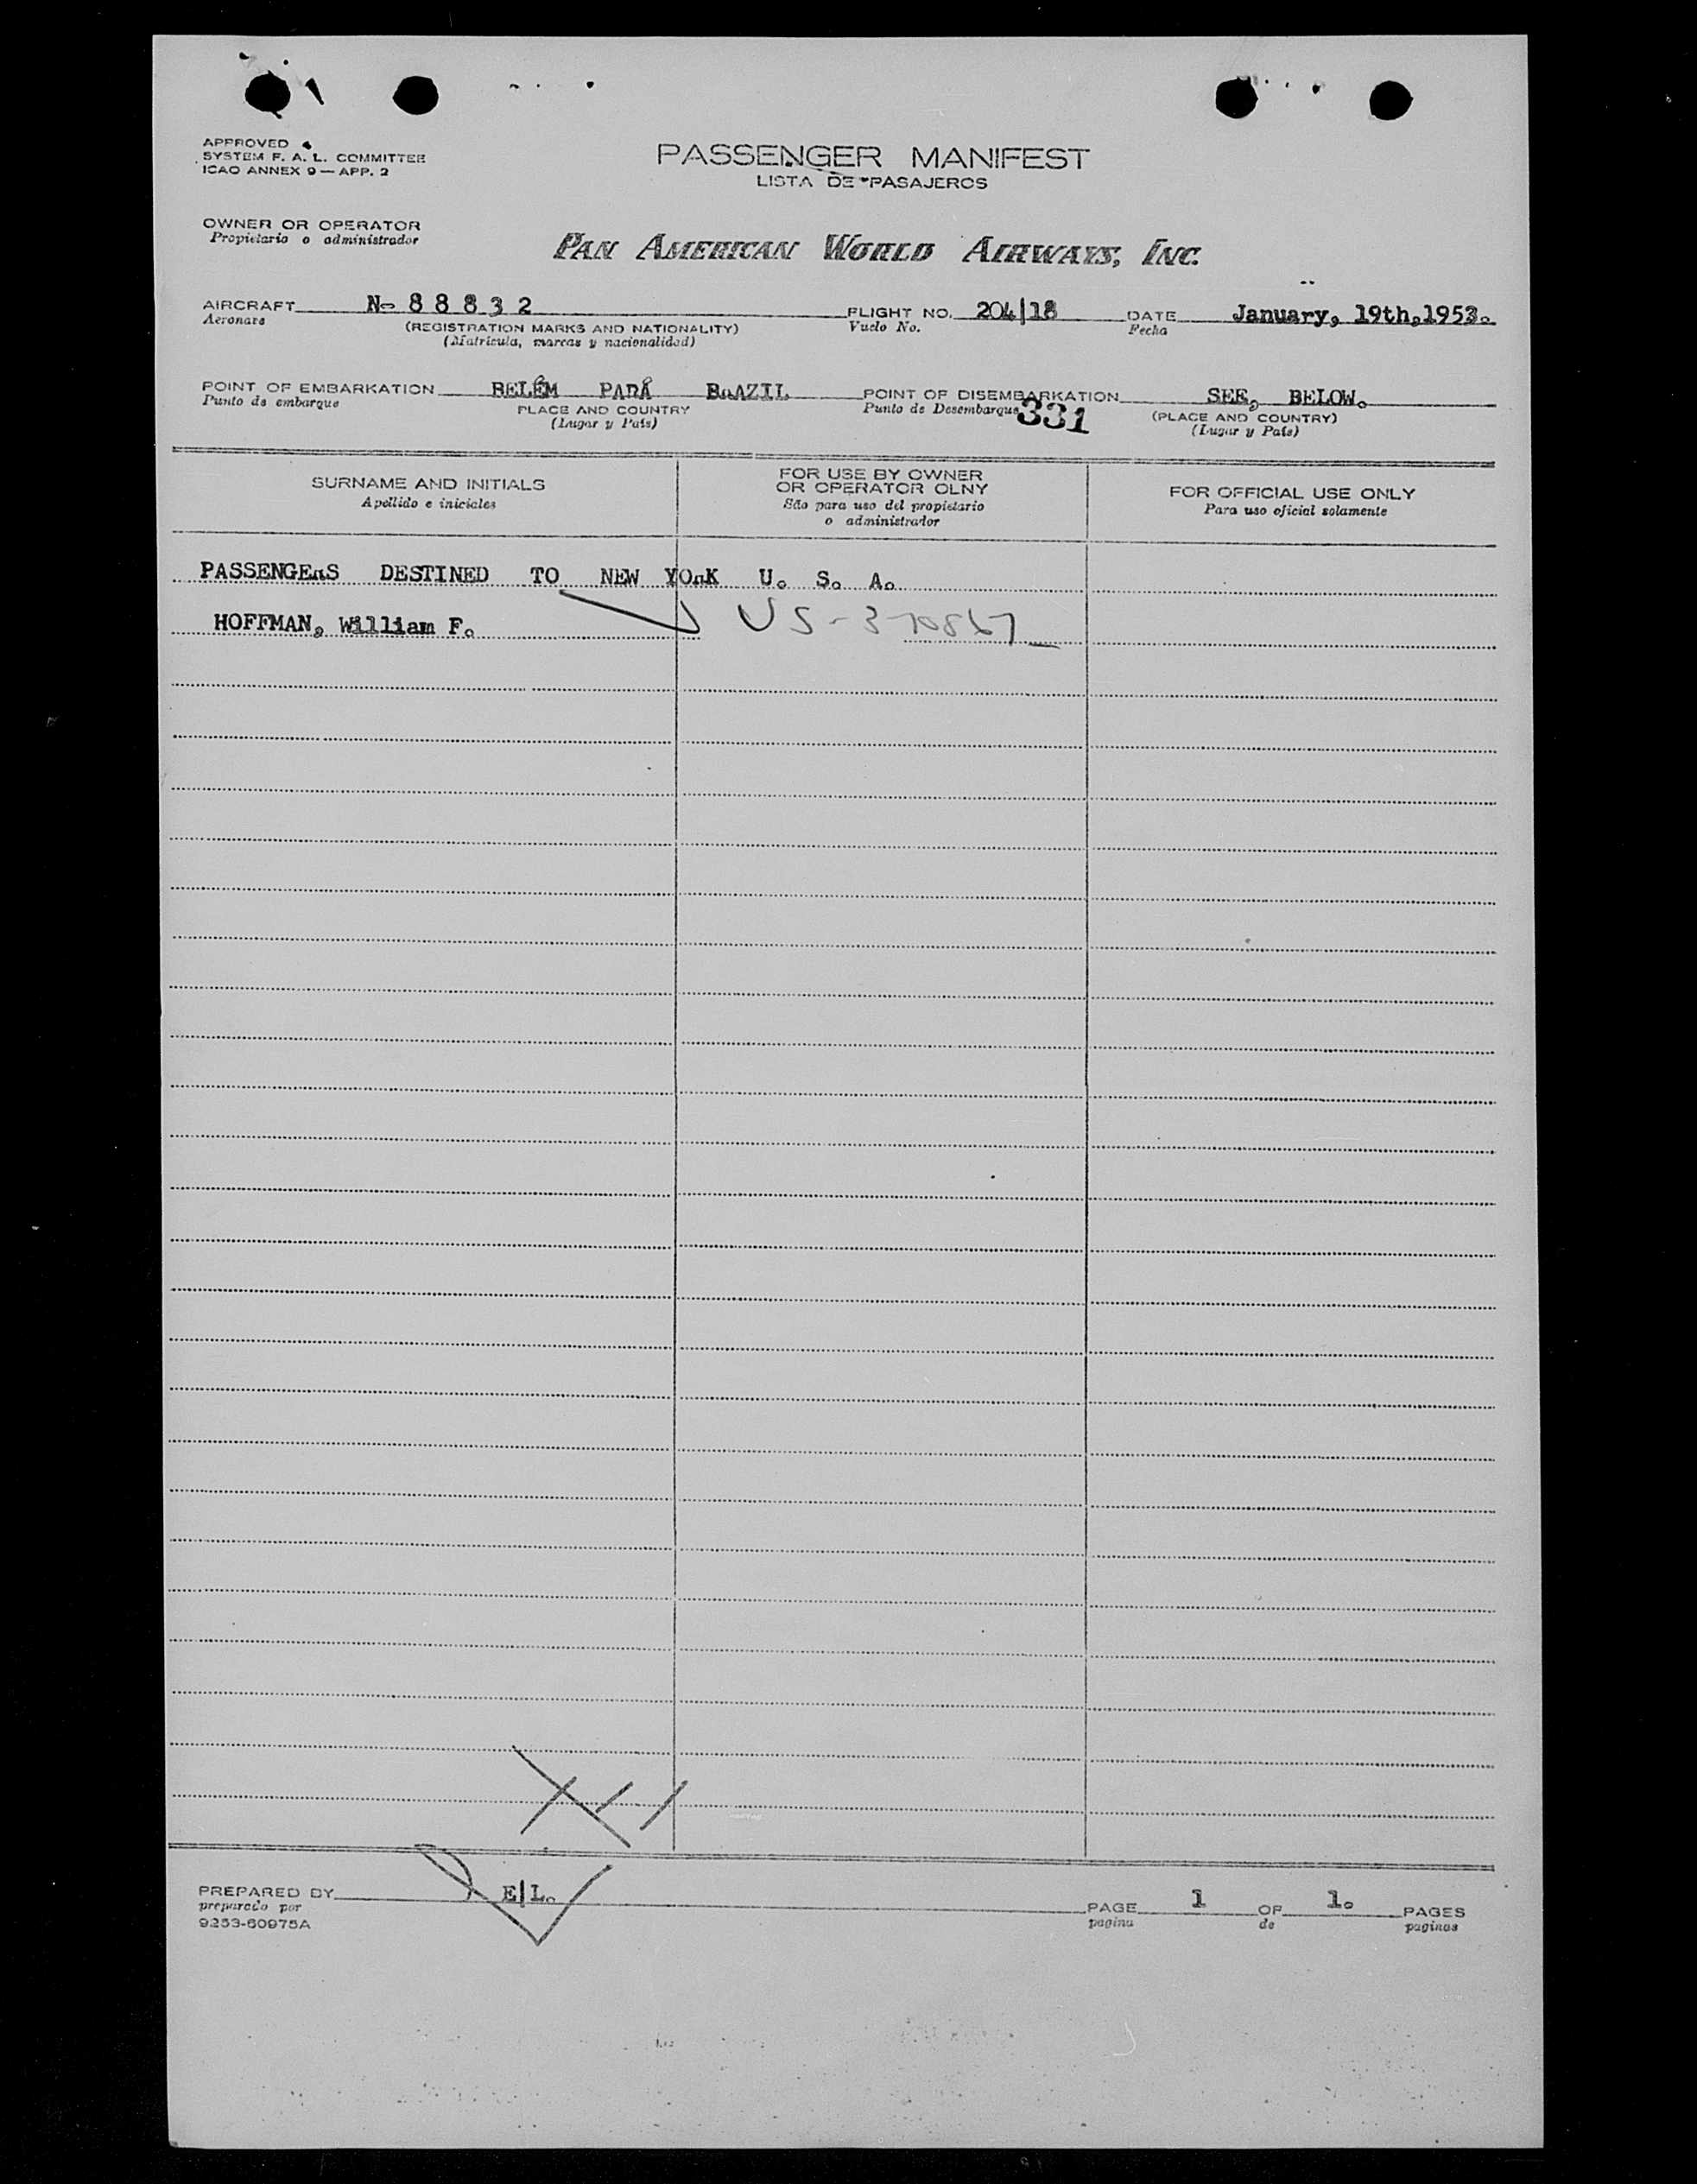 APPROVED
SYSTEM F. A. L. COMMITTEE
ICAO ANNEX 9 — APP. 2
PASSENGER MANIFEST
LISTA DE PASAJEROS
OWNER OR OPERATOR
Propietario o administrador
PAN AMERICAN WORLD AIRWAYS, INC.
AIRCRAFT N- 8 8 8 3 2 FLIGHT NO. 204/18 DATE January, 19th,1953.
Aeronave (REGISTRATION MARKS AND NATIONALITY) Vuelo No. Fecha
(Matricula, marcas y nacionalidad)
POINT OF EMBARKATION BELÉM PARÁ BRAZIL POINT OF DISEMBARKATION SEE, BELOW.
Punto de embarque PLACE AND COUNTRY Punto de Desembarque 331 (PLACE AND COUNTRY)
(Lugar y País) (Lugar y País)
SURNAME AND INITIALS
Apellido e iniciales
FOR USE BY OWNER
OR OPERATOR OLNY
São para uso del propietario
o administrador
FOR OFFICIAL USE ONLY
Para uso oficial solamente
PASSENGERS DESTINED TO NEW YORK U. S. A.
HOFFMAN, William F. US-370867
PREPARED BY E/L. PAGE 1 OF 1. PAGES
preparado por pagina de paginas
9253-60975A